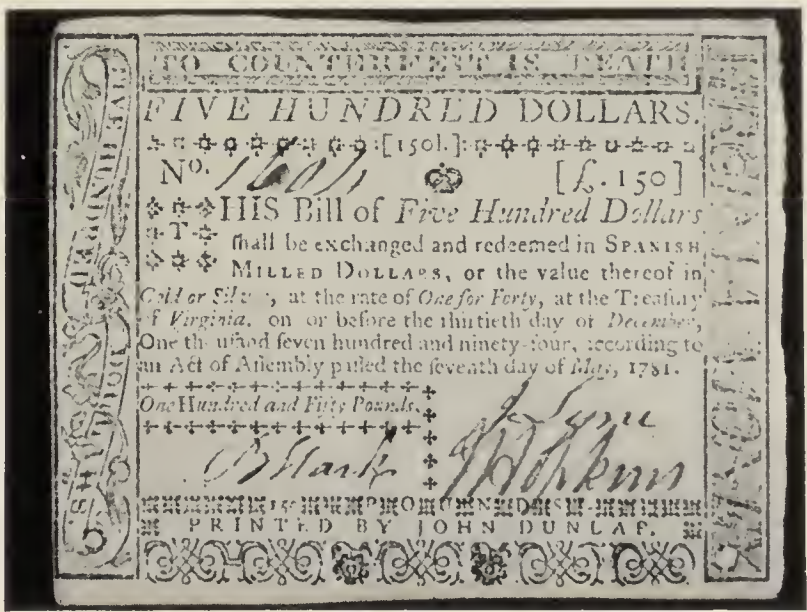 TO COUNTERFEIT IS DEATH
FIVE HUNDRED DOLLARS.
[150l.]
No. [£.150]
THIS Bill of Five Hundred Dollars
ſhall be exchanged and redeemed in SPANISH
MILLED DOLLARS, or the value thereof in
Gold or Silver, at the rate of One for Forty, at the Treaſury
of Virginia, on or before the thirtieth day of December,
One thouſand ſeven hundred and ninety-four, according to
an Act of Aſſembly paſſed the ſeventh day of May, 1781.
One Hundred and Fifty Pounds.
J Hopkins
150 POUNDS
PRINTED BY JOHN DUNLAP.
FIVE HUNDRED DOLLARS